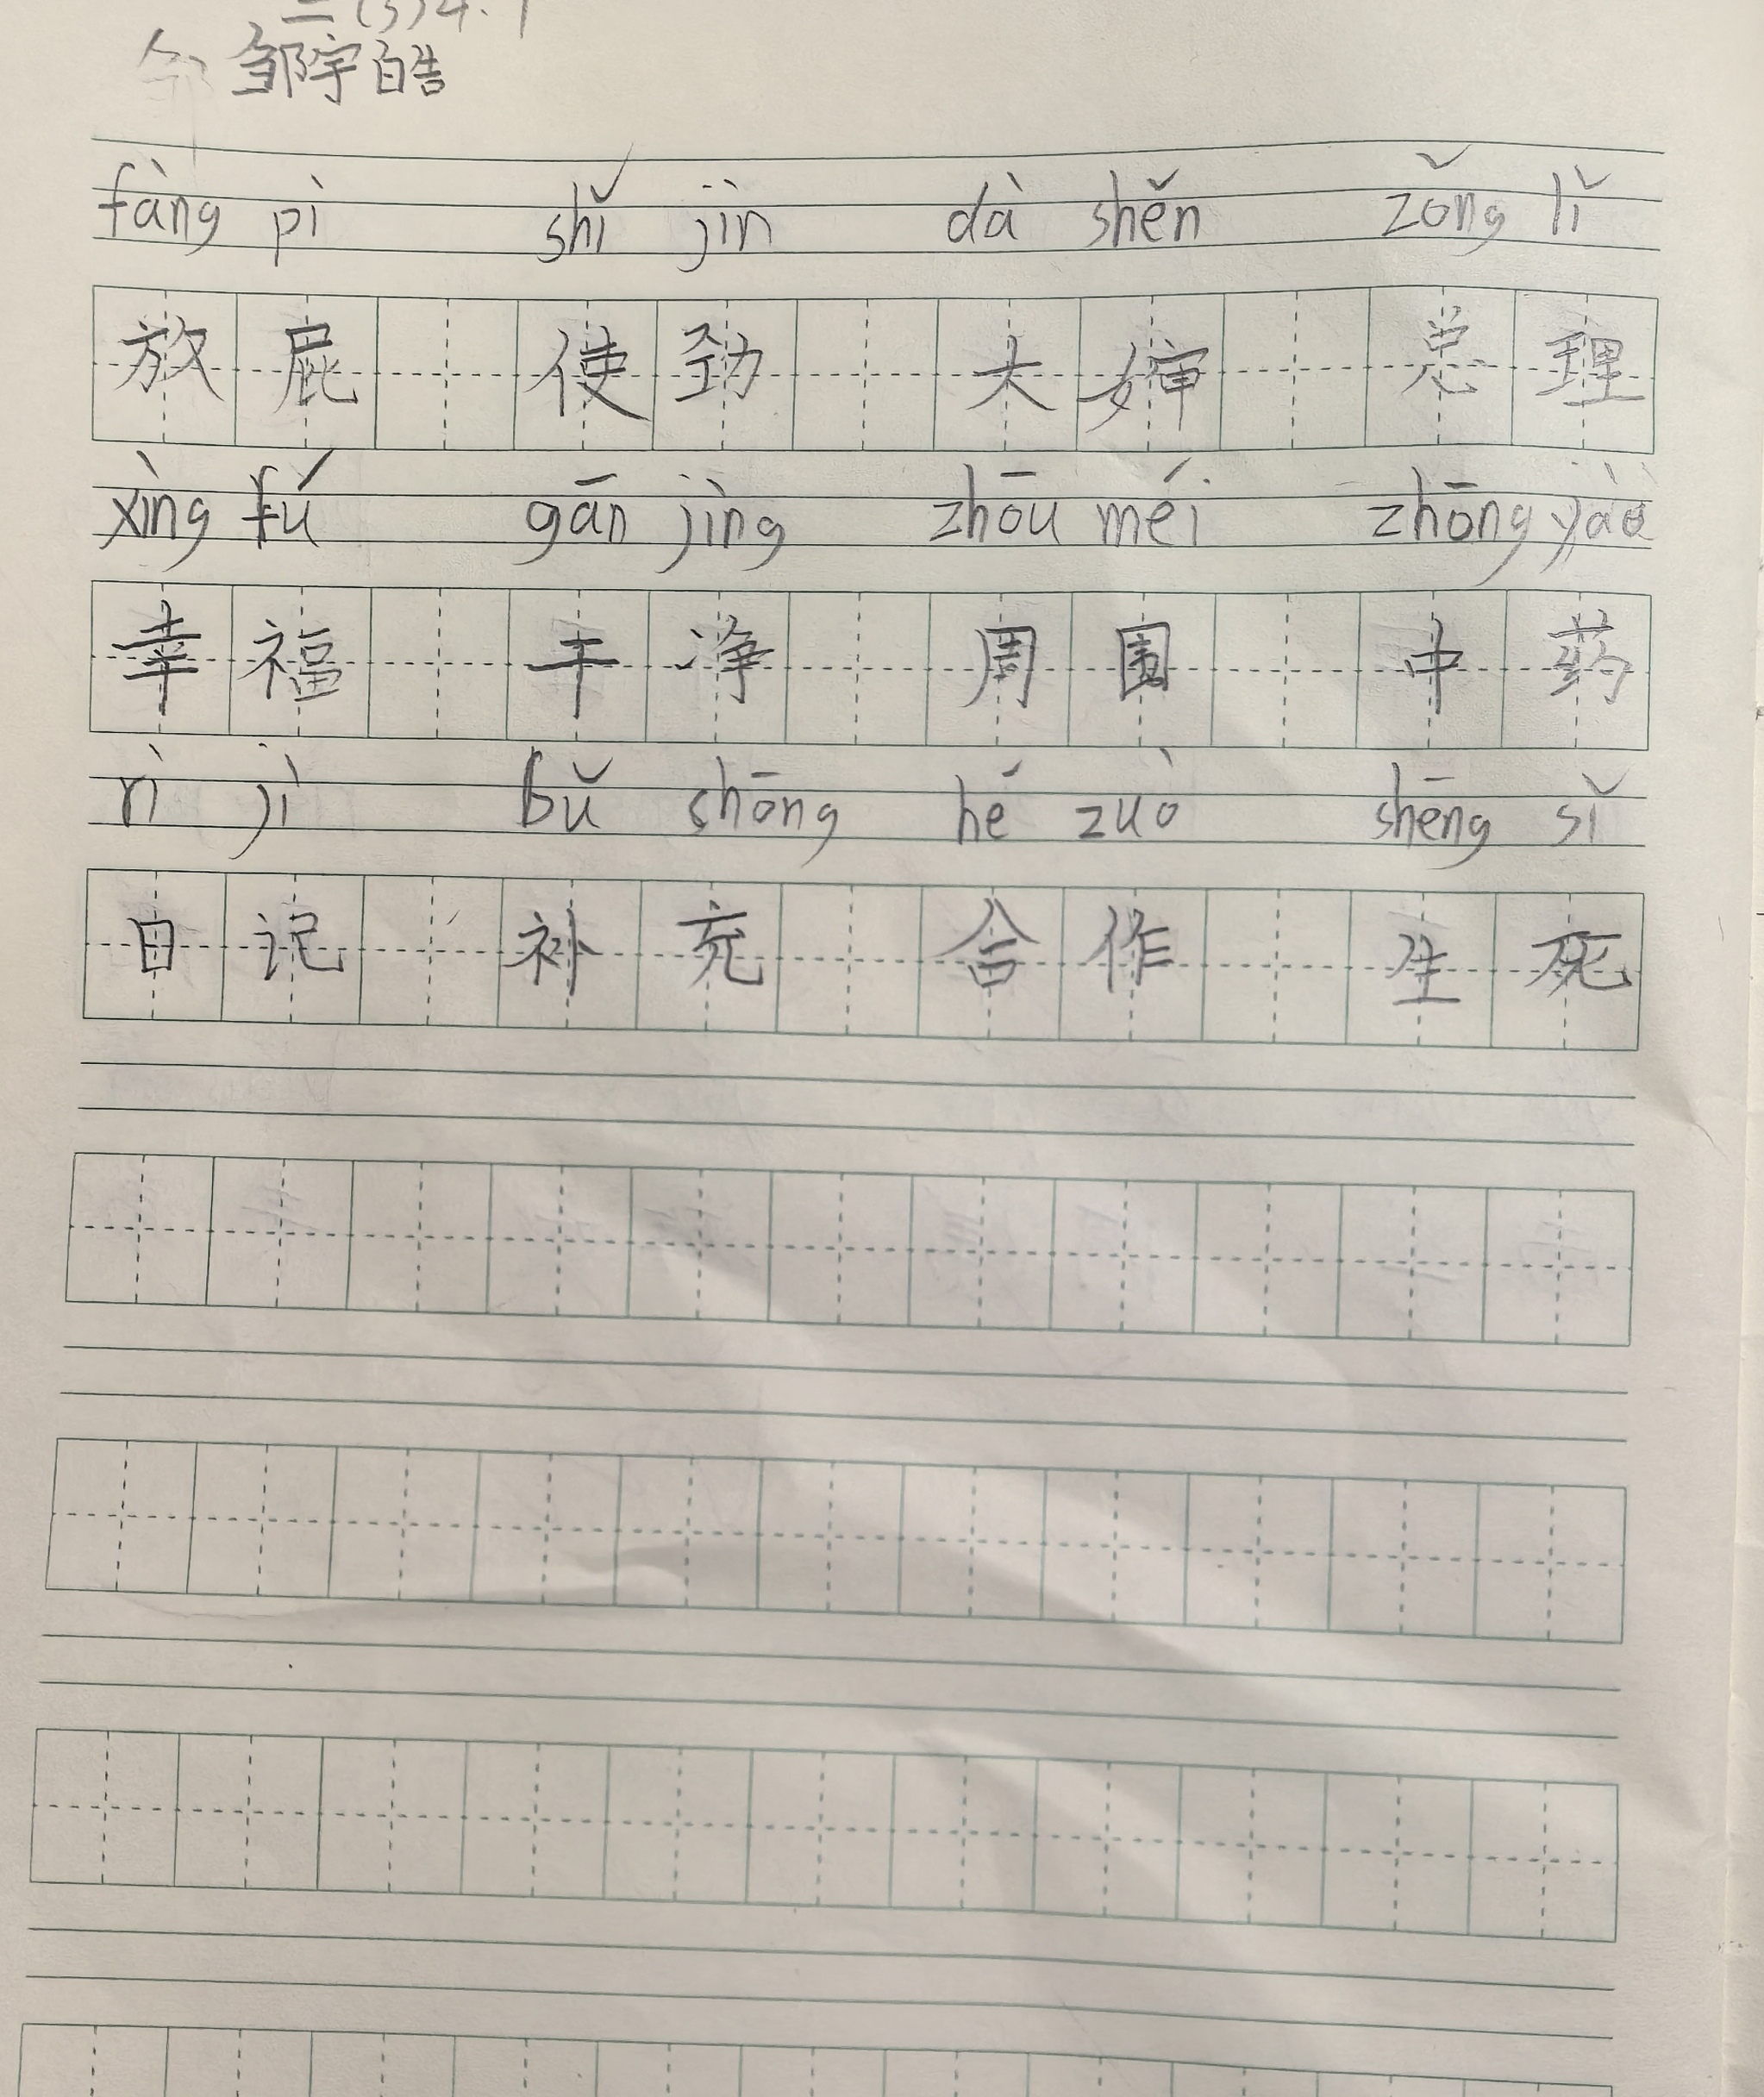 二(3)4.1
邹宇皓
fàng pì shǐ jìn dà shěn zǒng lǐ
放屁 使劲 大婶 总理
xìng fú gān jìng zhōu méi zhōng yào
幸福 干净 周围 中药
rì jì bǔ shōng hé zuò shēng sǐ
日记 补充 合作 生死